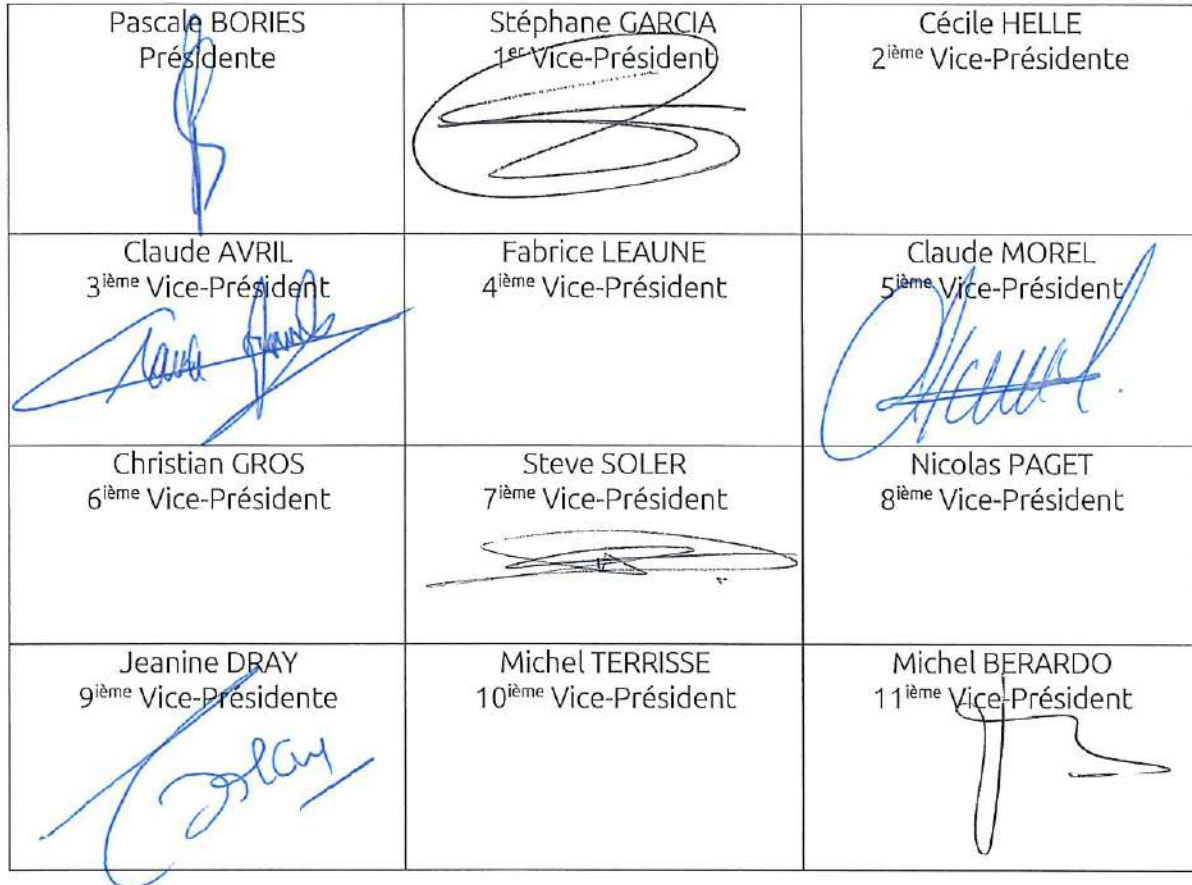 Pascale BORIES
Présidente
Stéphane GARCIA
1er Vice-Président
Cécile HELLE
2ième Vice-Présidente
Claude AVRIL
3ième Vice-Président
Fabrice LEAUNE
4ième Vice-Président
Claude MOREL
5ième Vice-Président
Christian GROS
6ième Vice-Président
Steve SOLER
7ième Vice-Président
Nicolas PAGET
8ième Vice-Président
Jeanine DRAY
9ième Vice-Présidente
Michel TERRISSE
10ième Vice-Président
Michel BERARDO
11ième Vice-Président